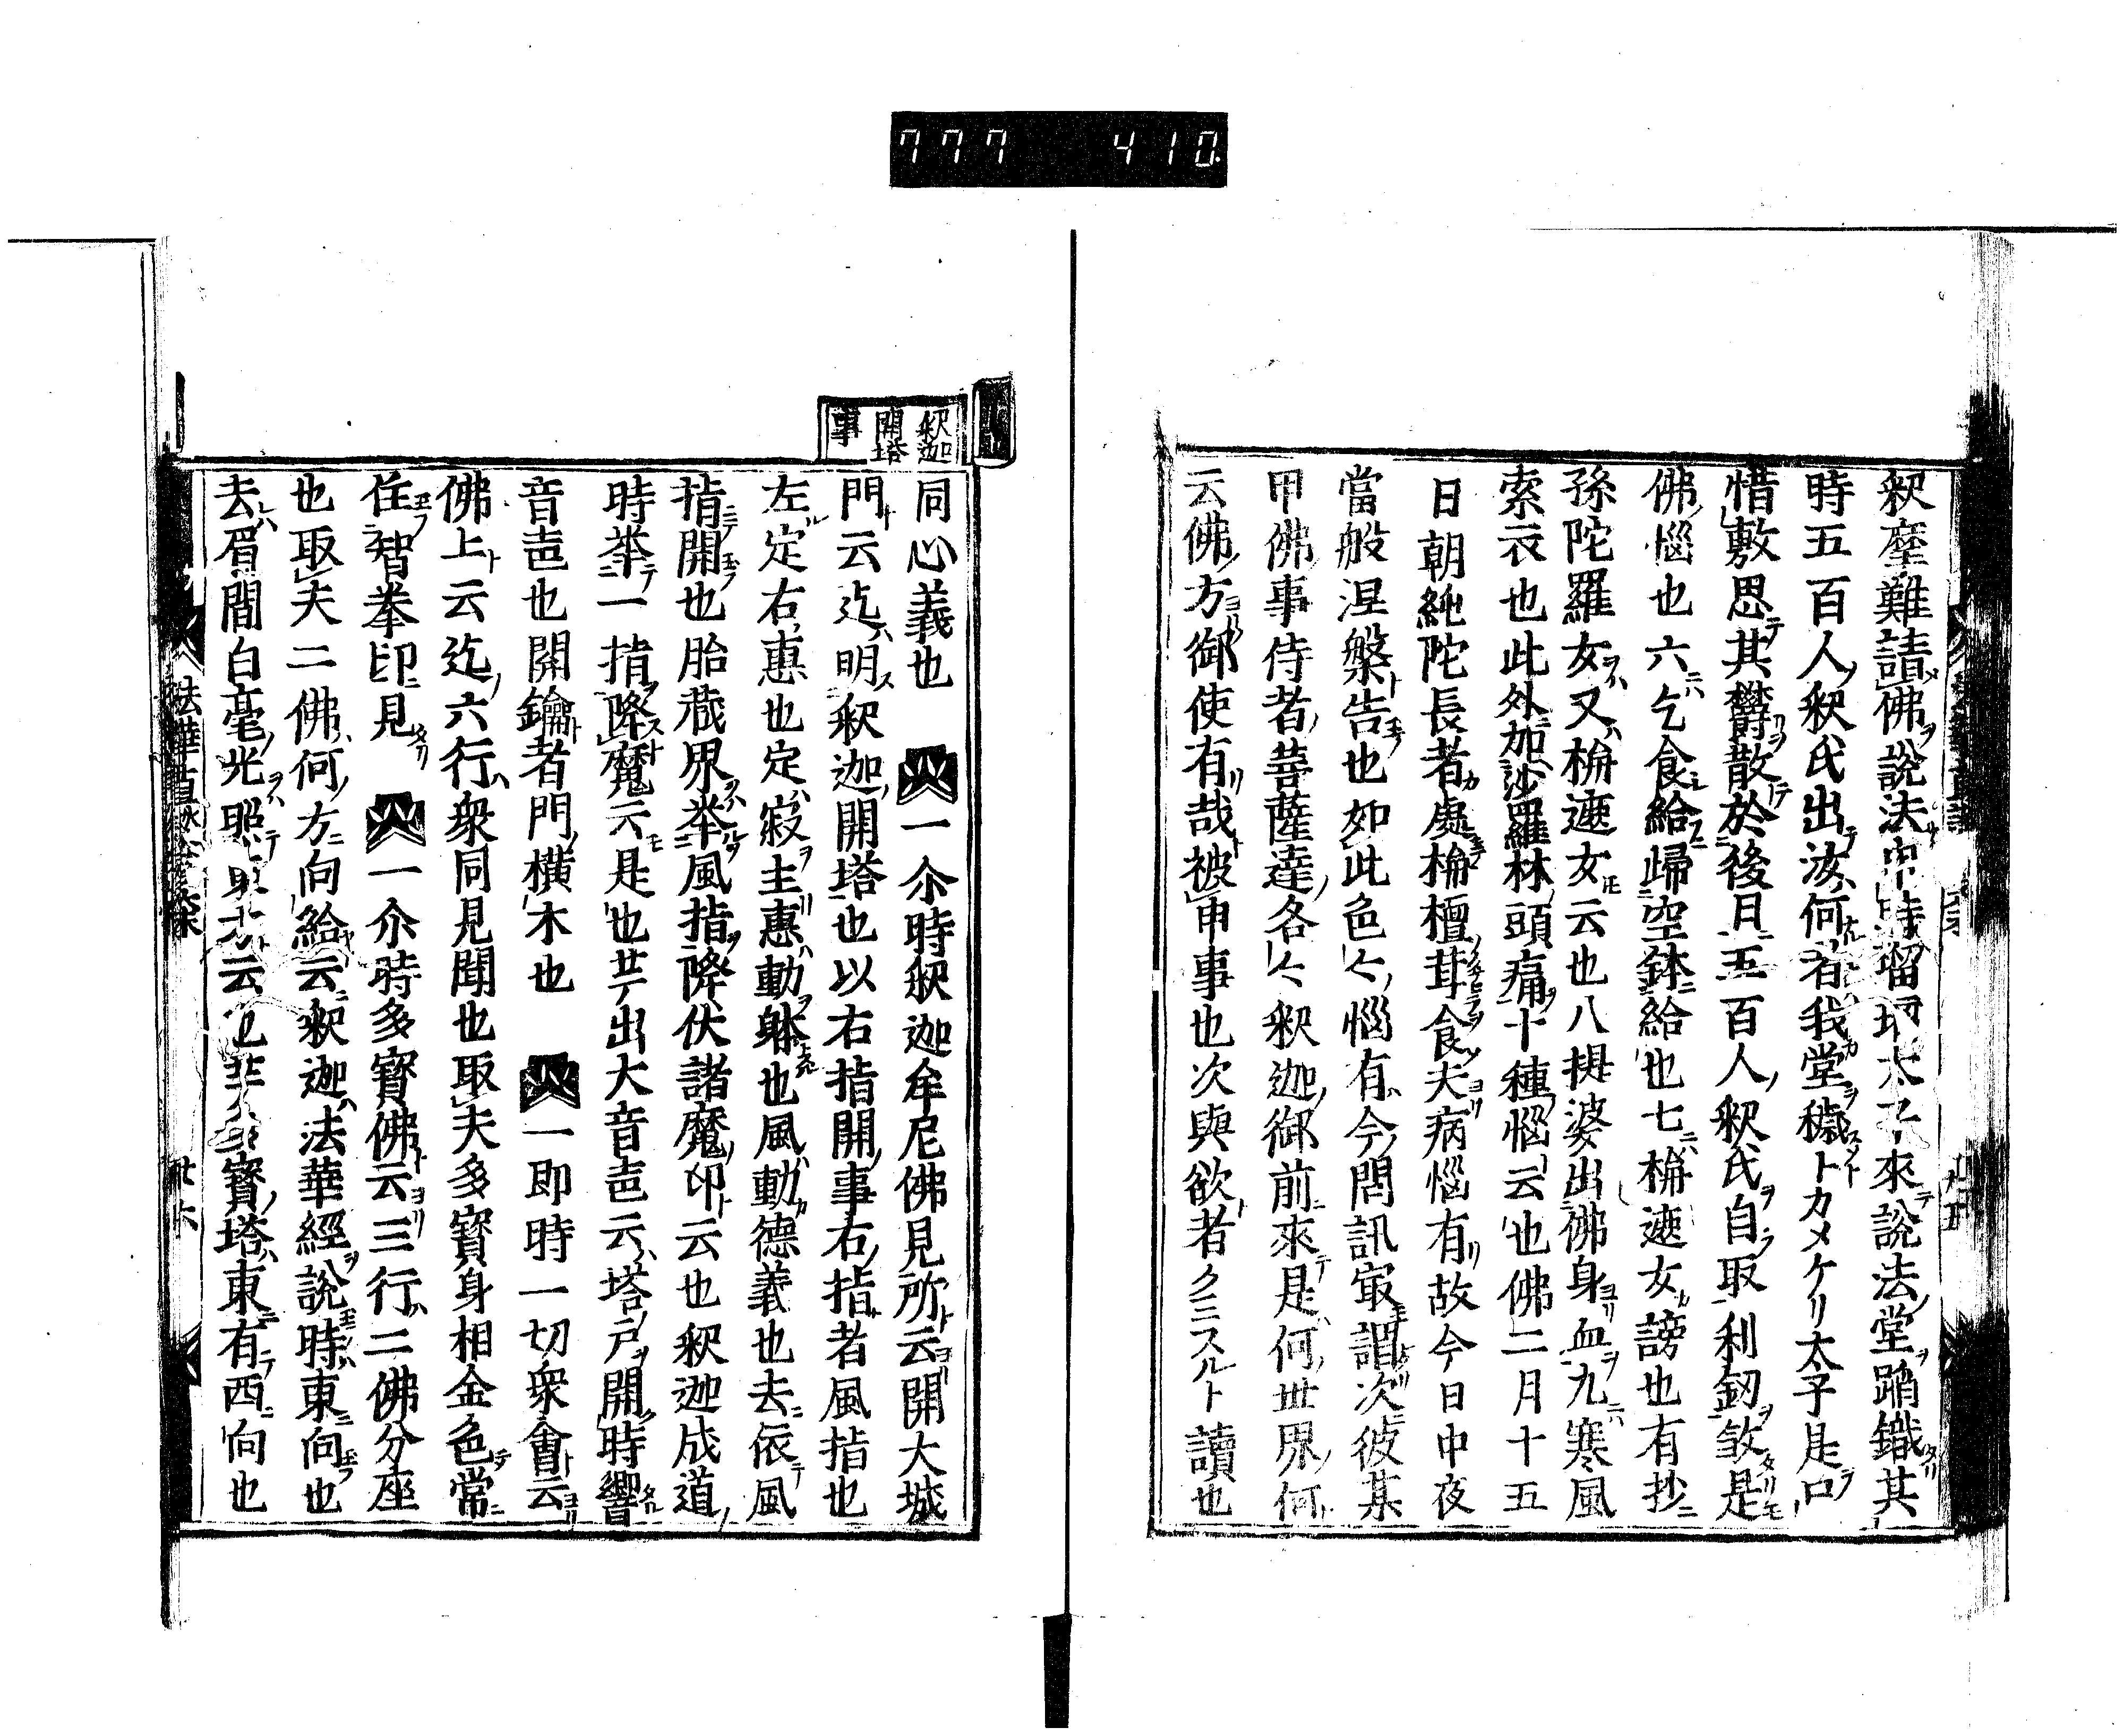 777 410
釈摩難請佛說法申時瑠太子來說法堂蹋鐵其
時五百人釈氏出汝何者我堂穢トカメケリ太子是口
惜敷思其欝散於後日五百人釈氏自取利釼敛是
佛惱也六乞食給歸空鉢給也七栴遮女謗也有抄
孫陀羅女又栴遮女云也八提婆出佛身血九寒風
索衣也此外加沙羅林頭痛十種惱云也佛二月十五
日朝純陀長者處栴檀茸食夫病惱有故今日中夜
當般涅槃告也如此色〻惱有今問訊冣謂次彼某
甲佛事侍者菩薩達各〻釈迦御前來是何世界何
云佛方御使有哉被申事也次與欲者クミスルト讀也
釈迦開塔事
同心義也 一尒時釈迦牟尼佛見所云開大城
門云迄明釈迦開塔也以右指開事右指者風指也
左定右惠也定寂主惠動躰也風動德義也去依風
指開也胎蔵界挙風指降伏諸魔印云也釈迦成道
時挙一指降魔云是也サテ出大音声云塔戸開時響
音声也開鑰者門橫木也 一即時一切衆會云
佛上云迄六行衆同見聞也取夫多寳身相金色常
住智拳印見 一尒時多寳佛云三行二佛分座
也取夫二佛何方向給云釈迦法華經說時東向也
去眉間白毫光照東方云也サテ多寳塔東有西向也
法華直 廿六